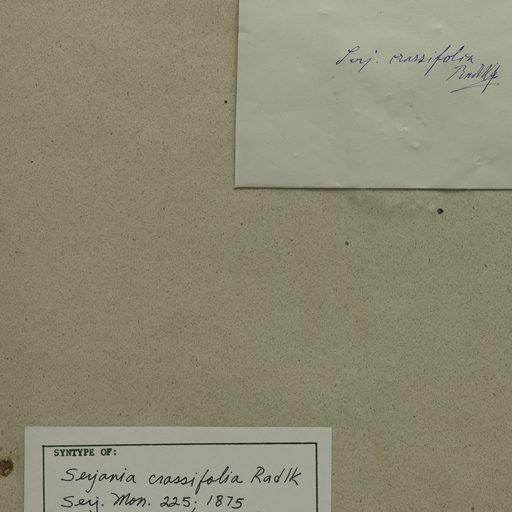 Serj. crassifolia
Radlk
SYNTYPE OF:
Serjania crassifolia Radlk
Serj. Mon. 225; 1875